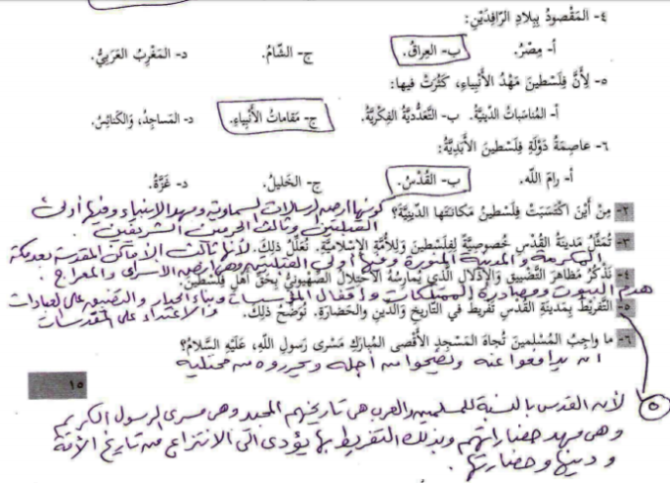 ٤- المَقْصودُ بِبِلادِ الرّافِدَيْنِ:
أ- مِصْرُ. ب- العِراقُ. ج- الشّامُ. د- المَغْرِبُ العَرَبِيُّ.
٥- لِأَنَّ فِلَسْطينَ مَهْدُ الأَنْبِياءِ، كَثُرَتْ فيها:
أ- المُناسَباتُ الدّينِيَّةُ. ب- التَّعَدُّدِيَّةُ الفِكْرِيَّةُ. ج- مَقاماتُ الأَنْبِياءِ. د- المَساجِدُ، وَالكَنائِسُ.
٦- عاصِمَةُ دَوْلَةِ فِلَسْطينَ الأَبَدِيَّةُ:
أ- رامَ اللّه. ب- القُدْسُ. ج- الخَليلُ. د- غَزَّةُ.
كونها ارض الرسالات السماوية ومهد الانبياء وفيها أولى
٢- مِنْ أَيْنَ اكْتَسَبَتْ فِلَسْطينُ مَكانَتَها الدّينِيَّةَ؟ القبلتين وثالث الحرمين الشريفين.
٣- تُمَثِّلُ مَدينَةُ القُدْسِ خُصوصِيَّةً لِفِلَسْطينَ وَلِلأُمَّةِ الإِسْلامِيَّةِ. نُعَلِّلُ ذلِكَ. لأنها ثالث الأماكن المقدسة بعد مكة
المكرمة والمدينة المنورة وفيها أولى القبلتين وهي أرض الاسراء والمعراج
٤- نَذْكُرُ مَظاهِرَ التَّضْييقِ وَالإِذْلالِ الَّذي يُمارِسُهُ الاحْتِلالُ الصُّهْيونِيُّ بِحَقِّ أَهْلِ فِلَسْطينَ.
هدم البيوت ومصادرة الممتلكات وإقفال المؤسسات وبناء الجدار والتضييق على العبادات
٥- التَّفْريطُ بِمَدينَةِ القُدْسِ تَفْريطٌ في التّاريخِ وَالدّينِ وَالحَضارَةِ. نُوَضِّحُ ذلِكَ. والاعتداء على المقدسات
٦- ما واجِبُ المُسْلِمينَ تُجاهَ المَسْجِدِ الأَقْصى المُبارَكِ مَسْرى رَسولِ اللّهِ، عَلَيْهِ السَّلامُ؟
ان يدافعوا عنه ويضحوا من اجله ويحرروه من محتليه
١٥
٥ لأن القدس بالنسبة للمسلمين والعرب هي تاريخهم المجيد وهي مسرى الرسول الكريم
وهي مهد حضاراتهم وبذلك التفريط بها يؤدي الى الانتزاع من تاريخ الأمة
ودينها وحضارتها.